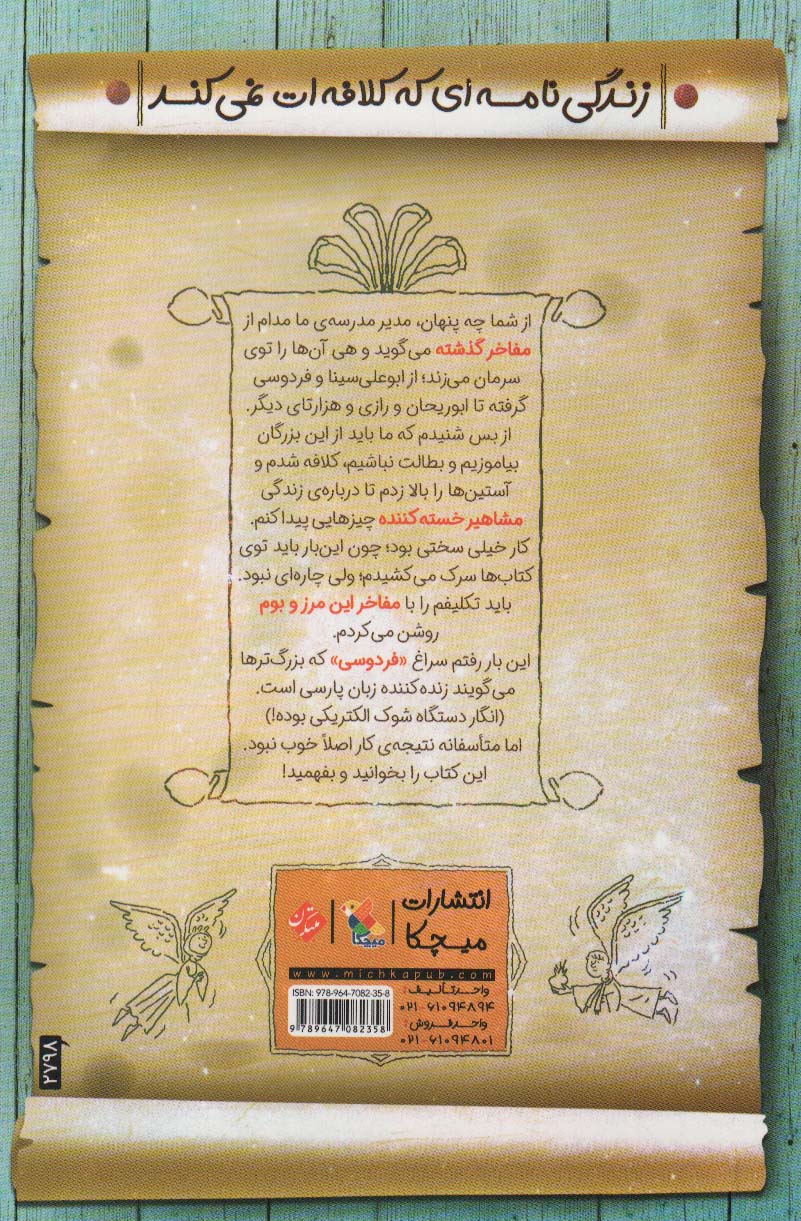 زندگی نامه ای که کلافه ات نمی کند
از شما چه پنهان، مدیر مدرسه‌ی ما مدام از
مفاخر گذشته می‌گوید و هی آن‌ها را توی
سرمان می‌زند؛ از ابوعلی‌سینا و فردوسی
گرفته تا ابوریحان و رازی و هزارتای دیگر.
از بس شنیدم که ما باید از این بزرگان
بیاموزیم و بطالت نباشیم، کلافه شدم و
آستین‌ها را بالا زدم تا درباره‌ی زندگی
مشاهیر خسته‌کننده چیزهایی پیدا کنم.
کار خیلی سختی بود؛ چون این‌بار باید توی
کتاب‌ها سرک می‌کشیدم؛ ولی چاره‌ای نبود.
باید تکلیفم را با مفاخر این مرز و بوم
روشن می‌کردم.
این بار رفتم سراغ «فردوسی» که بزرگ‌ترها
می‌گویند زنده‌کننده زبان پارسی است.
(انگار دستگاه شوک الکتریکی بوده!)
اما متأسفانه نتیجه‌ی کار اصلاً خوب نبود.
این کتاب را بخوانید و بفهمید!
انتشارات
میچکا
میچکا
مبتکران
www.michkapub.com
واحد تألیف:
۰۲۱-۶۱۰۹۴۸۹۴
واحد فروش:
۰۲۱-۶۱۰۹۴۸۰۱
ISBN: 978-964-7082-35-8
9 789647 082358
۲۷۹۸